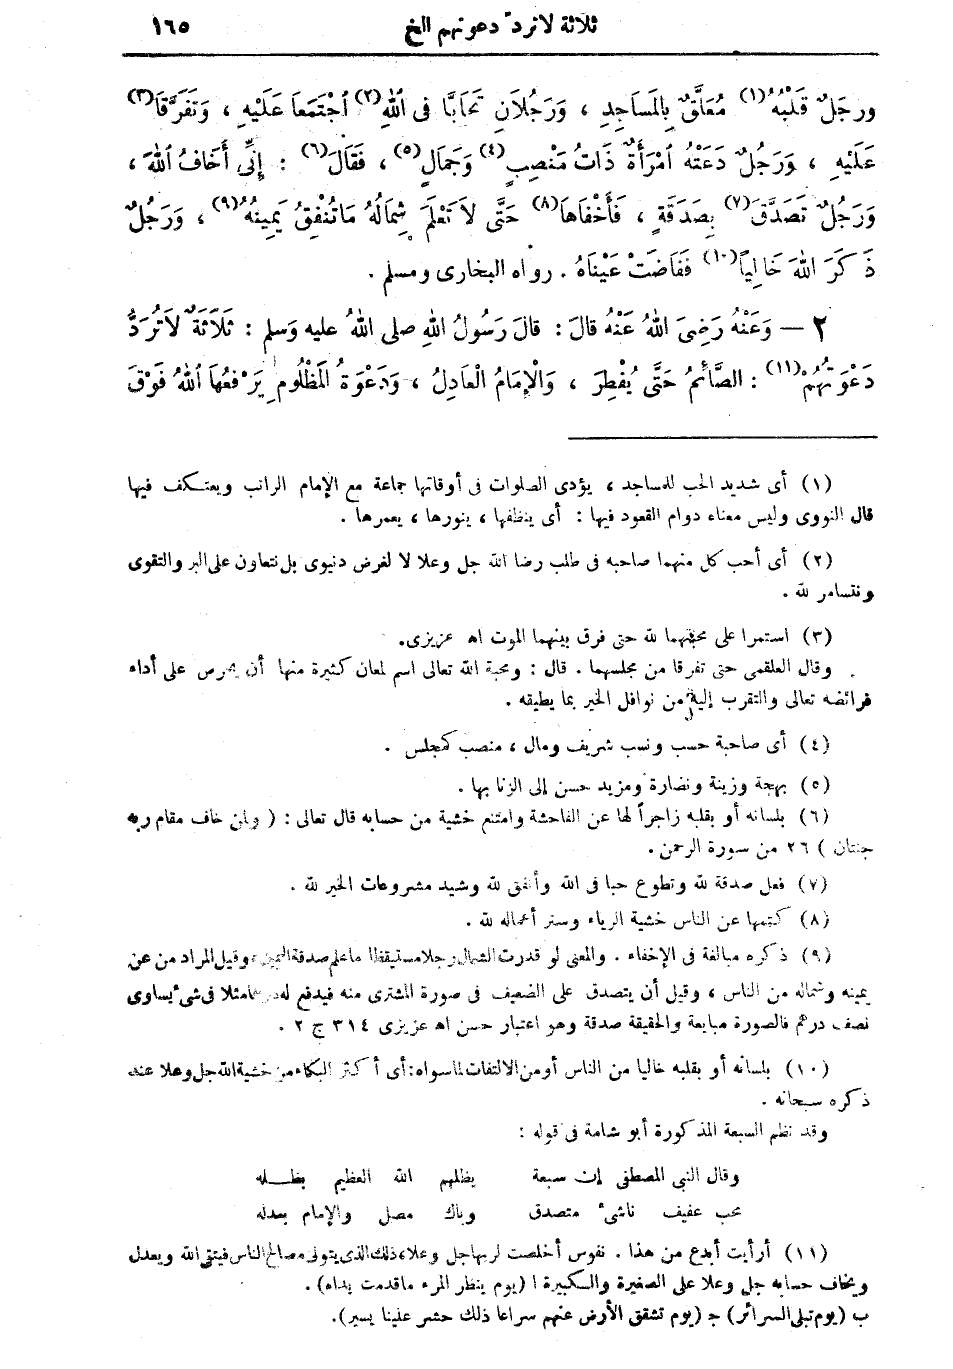 ثلاثة لا ترد دعوتهم الخ ١٦٥
ورجَلٌ قَلْبُهُ(١) مُعَلَّقٌ بِالمَسَاجِدِ ، وَرَجُلاَنِ تَحَابَّا فى اللهِ(٢) اجْتَمَعَا عَلَيْهِ ، وَتَفَرَّقَا(٣)
عَلَيْهِ ، وَرَجُلٌ دَعَتْهُ امْرَأَةٌ ذَاتُ مَنْصِبٍ(٤) وَجَمَالٍ(٥) ، فَقَالَ(٦) : إِنِّى أَخَافُ اللهَ ،
وَرَجُلٌ تَصَدَّقَ(٧) بِصَدَقَةٍ ، فَأَخْفَاهَا(٨) حَتَّى لاَ تَعْلَمَ شِمَالُهُ مَا تُنْفِقُ يَمِينُهُ(٩) ، وَرَجُلٌ
ذَكَرَ اللهَ خَالِياً(١٠) فَفَاضَتْ عَيْنَاهُ . رواه البخارى ومسلم .
٢ — وَعَنْهُ رَضِىَ اللهُ عَنْهُ قالَ : قالَ رَسُولُ اللهِ صلى اللهُ عليه وَسلم : ثَلاَثَةٌ لاَ تُرَدُّ
دَعْوَتُهُمْ(١١) : الصَّائمُ حَتَّى يُفْطِرَ ، وَالْإِمَامُ الْعَادِلُ ، وَدَعْوَةُ المَظْلُومِ يَرْفعُهَا اللهُ فَوْقَ
(١) أى شديد الحب للمساجد ، يؤدى الصلوات فى أوقاتها جماعة مع الإمام الراتب ويعتكف فيها
قال النووى وليس معناه دوام القعود فيها : أى ينظفها ، ينورها ، يعمرها .
(٢) أى أحب كل منهما صاحبه فى طلب رضا الله جل وعلا لا لغرض دنيوى بل نتعاون على البر والتقوى
ونتسامر لله .
(٣) استمرا على محبتهما لله حتى فرق بينهما الموت اه عزيزى.
وقال العلقمى حتى تفرقا من مجلسهما . قال : ومحبة الله تعالى اسم لمعان كثيرة منها أن يحرص على أداء
فرائضه تعالى والتقرب إليه من نوافل الخير بما يطيقه .
(٤) أى صاحبة حسب ونسب شريف ومال ، منصب كمجلس .
(٥) بهجة وزينة ونضارة ومزيد حسن إلى الزنا بها .
(٦) بلسانه أو بقلبه زاجراً لها عن الفاحشة وامتنع خشية من حسابه قال تعالى : ( ولمن خاف مقام ربه
جنتان ) ٢٦ من سورة الرحمن .
(٧) فعل صدقة لله وتطوع حبا فى الله وأنفق لله وشيد مشروعات الخير لله .
(٨) كتمها عن الناس خشية الرياء وستر أعماله لله .
(٩) ذكره مبالغة فى الإخفاء . والمعنى لو قدرت الشمال رجلا مستيقظا ما علم صدقة اليمين، وقيل المراد من عن
يمينه وشماله من الناس ، وقيل أن يتصدق على الضعيف فى صورة المشترى منه فيدفع له درهما مثلا فى شىء يساوى
نصف درهم فالصورة مبايعة والحقيقة صدقة وهو اعتبار حسن اه عزيزى ٣١٤ ج ٢ .
(١٠) بلسانه أو بقلبه خاليا من الناس أو من الالتفات لما سواه: أى أكثر البكاء من خشية الله جل وعلا عند
ذكره سبحانه .
وقد نظم السبعة المذكورة أبو شامة فى قوله :
وقال النبى المصطفى إن سبعة يظلهم الله العظيم بظله
محب عفيف ناشىء متصدق وباك مصل والإمام بعدله
(١١) أرأيت أبدع من هذا . نفوس أخلصت لربها جل وعلا، ذلك الذى يتولى مصالح الناس فيتقى الله ويعدل
ويخاف حسابه جل وعلا على الصغيرة والكبيرة ا (يوم ينظر المرء ما قدمت يداه) .
ب (يوم تبلى السرائر) ج (يوم تشقق الأرض عنهم سراعا ذلك حشر علينا يسير).